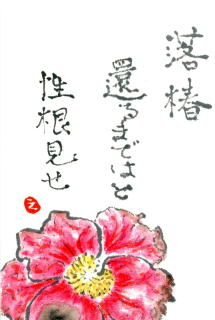 落椿
還るまではと
性根見せ
え